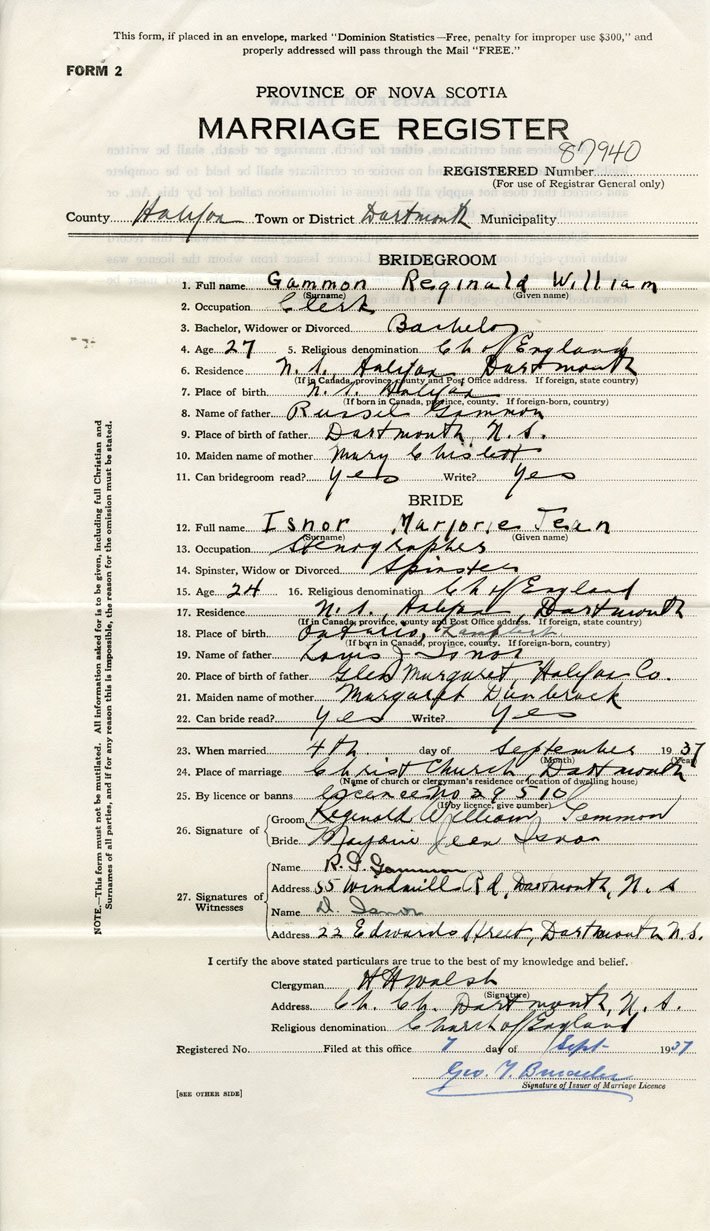 This form, if placed in an envelope, marked "Dominion Statistics—Free, penalty for improper use $300," and
properly addressed will pass through the Mail "FREE."
FORM 2
PROVINCE OF NOVA SCOTIA
MARRIAGE REGISTER
87940
REGISTERED Number
(For use of Registrar General only)
County Halifax Town or District Dartmouth Municipality
BRIDEGROOM
1. Full name Gammon Reginald William
(Surname) (Given name)
2. Occupation Clerk
3. Bachelor, Widower or Divorced Bachelor
4. Age 27 5. Religious denomination Ch of England
6. Residence N.S. Halifax Dartmouth
(If in Canada, province, county and Post Office address. If foreign, state country)
7. Place of birth N.S. Halifax
(If born in Canada, province, county. If foreign-born, country)
8. Name of father Russel Gammon
9. Place of birth of father Dartmouth, N.S.
10. Maiden name of mother Mary Chislett
11. Can bridegroom read? Yes Write? Yes
BRIDE
12. Full name Isnor Marjorie Jean
(Surname) (Given name)
13. Occupation Stenographer
14. Spinster, Widow or Divorced Spinster
15. Age 24 16. Religious denomination Ch of England
17. Residence N.S., Halifax, Dartmouth
(If in Canada, province, county and Post Office address. If foreign, state country)
18. Place of birth Ontario,
(If born in Canada, province, county. If foreign-born, country)
19. Name of father Louis J. Isnor
20. Place of birth of father Glen Margaret, Halifax Co.
21. Maiden name of mother Margaret Dunbrack
22. Can bride read? Yes Write? Yes
23. When married 4th day of September 1937
(Month) (Year)
24. Place of marriage Christ Church, Dartmouth
(Name of church or clergyman's residence or location of dwelling house)
25. By licence or banns Licence No 29510
(If by licence, give number)
26. Signature of
Groom Reginald William Gammon
Bride Marjorie Jean Isnor
27. Signatures of Witnesses
Name R. J. Gammon
Address 35 Windmill Rd, Dartmouth, N.S
Name D. Isnor
Address 22 Edwards Street, Dartmouth N.S.
I certify the above stated particulars are true to the best of my knowledge and belief.
Clergyman H H Walsh
(Signature)
Address Ch. Ch. Dartmouth, N.S.
Religious denomination Church of England
Registered No. Filed at this office 7 day of Sept 1937
Geo. T.
Signature of Issuer of Marriage Licence
[SEE OTHER SIDE]
NOTE.—This form must not be mutilated. All information asked for is to be given, including full Christian and
Surnames of all parties, and if for any reason this is impossible, the reason for the omission must be stated.